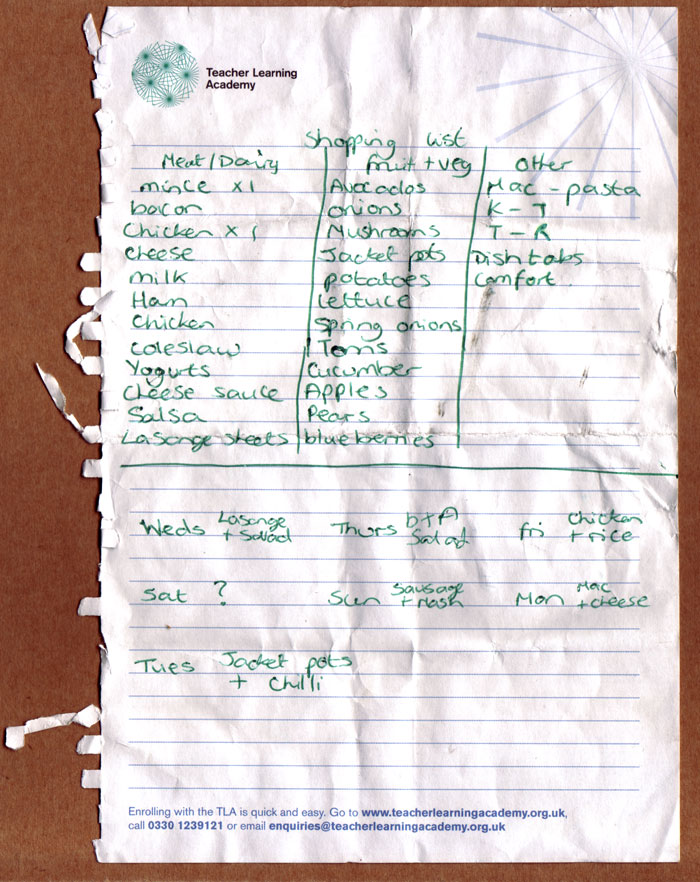 Teacher Learning
Academy
Shopping List
Meat/Dairy
mince x1
bacon
Chicken x 1
cheese
milk
Ham
Chicken
coleslaw
Yogurts
Cheese sauce
Salsa
Lasonge sheets
fruit + veg
Avocados
onions
Mushrooms
Jacket pots
potatoes
lettuce
Spring onions
Toms
Cucumber
Apples
Pears
blueberries
Other
Mac - pasta
K - T
T - R
Dish tabs
Comfort.
Weds Lasonge + Salad
Thurs b+A Salad
Fri Chicken + rice
Sat ?
Sun Sausage + Mash
Mon Mac + cheese
Tues Jacket pots
+ Chilli
Enrolling with the TLA is quick and easy. Go to www.teacherlearningacademy.org.uk,
call 0330 1239121 or email enquiries@teacherlearningacademy.org.uk